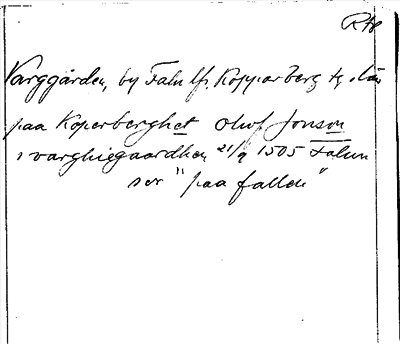 Varggården, by Falu lfs. Kopparberg tg. län
paa Koperberghet Oluf Jonson
i varghiegaardhen 21/9 1505 Falun
ser "paa fallen"